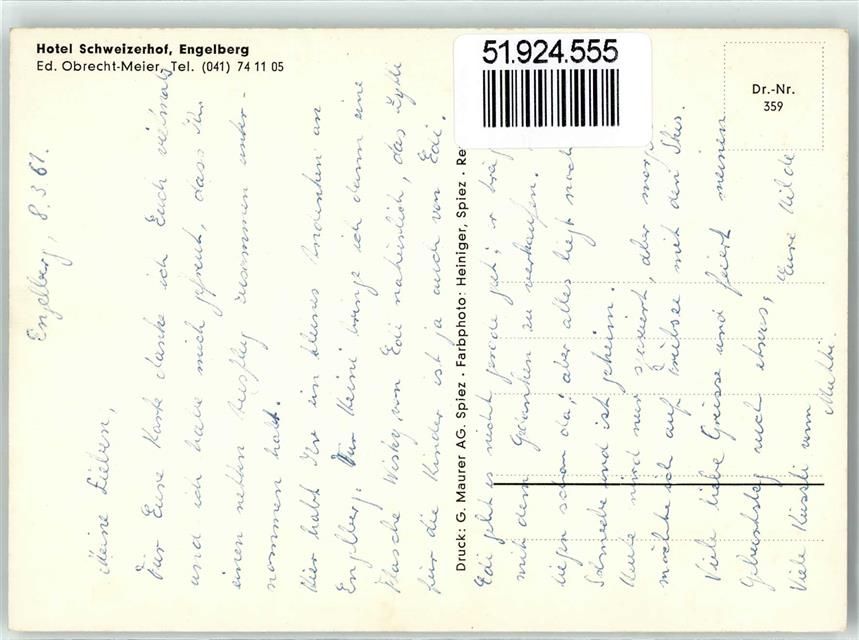 Hotel Schweizerhof, Engelberg
Ed. Obrecht-Meier, Tel. (041) 74 11 05
51.924.555
Dr.-Nr.
359
Druck: G. Maurer AG. Spiez · Farbphoto: Heiniger, Spiez · Re
Engelberg, 8.3.61.
Meine Lieben,
Für Eure Karte danke ich Euch vielmals
und ich habe mich gefreut, dass Ihr
einen netten Ausflug zusammen unter-
nommen habt.
Hier habt Ihr ein kleines Andenken an
Engelberg. Für Heini bringe ich dann eine
Flasche Wisky, von Edi natürlich, das
für die Kinder ist ja auch von Edi.
Edi geht es nicht gerade gut;
mit dem Gedanken zu verkaufen.
liegen schon da; aber alles liegt noch
Schwebe und ist geheim.
Heute wird nur, aber
möchte ich auf mit den Skis.
Viele liebe Grüsse und feiert meinen
Geburtstag auch etwas, Eure Hilde
Viele Küssli vom Mutti.